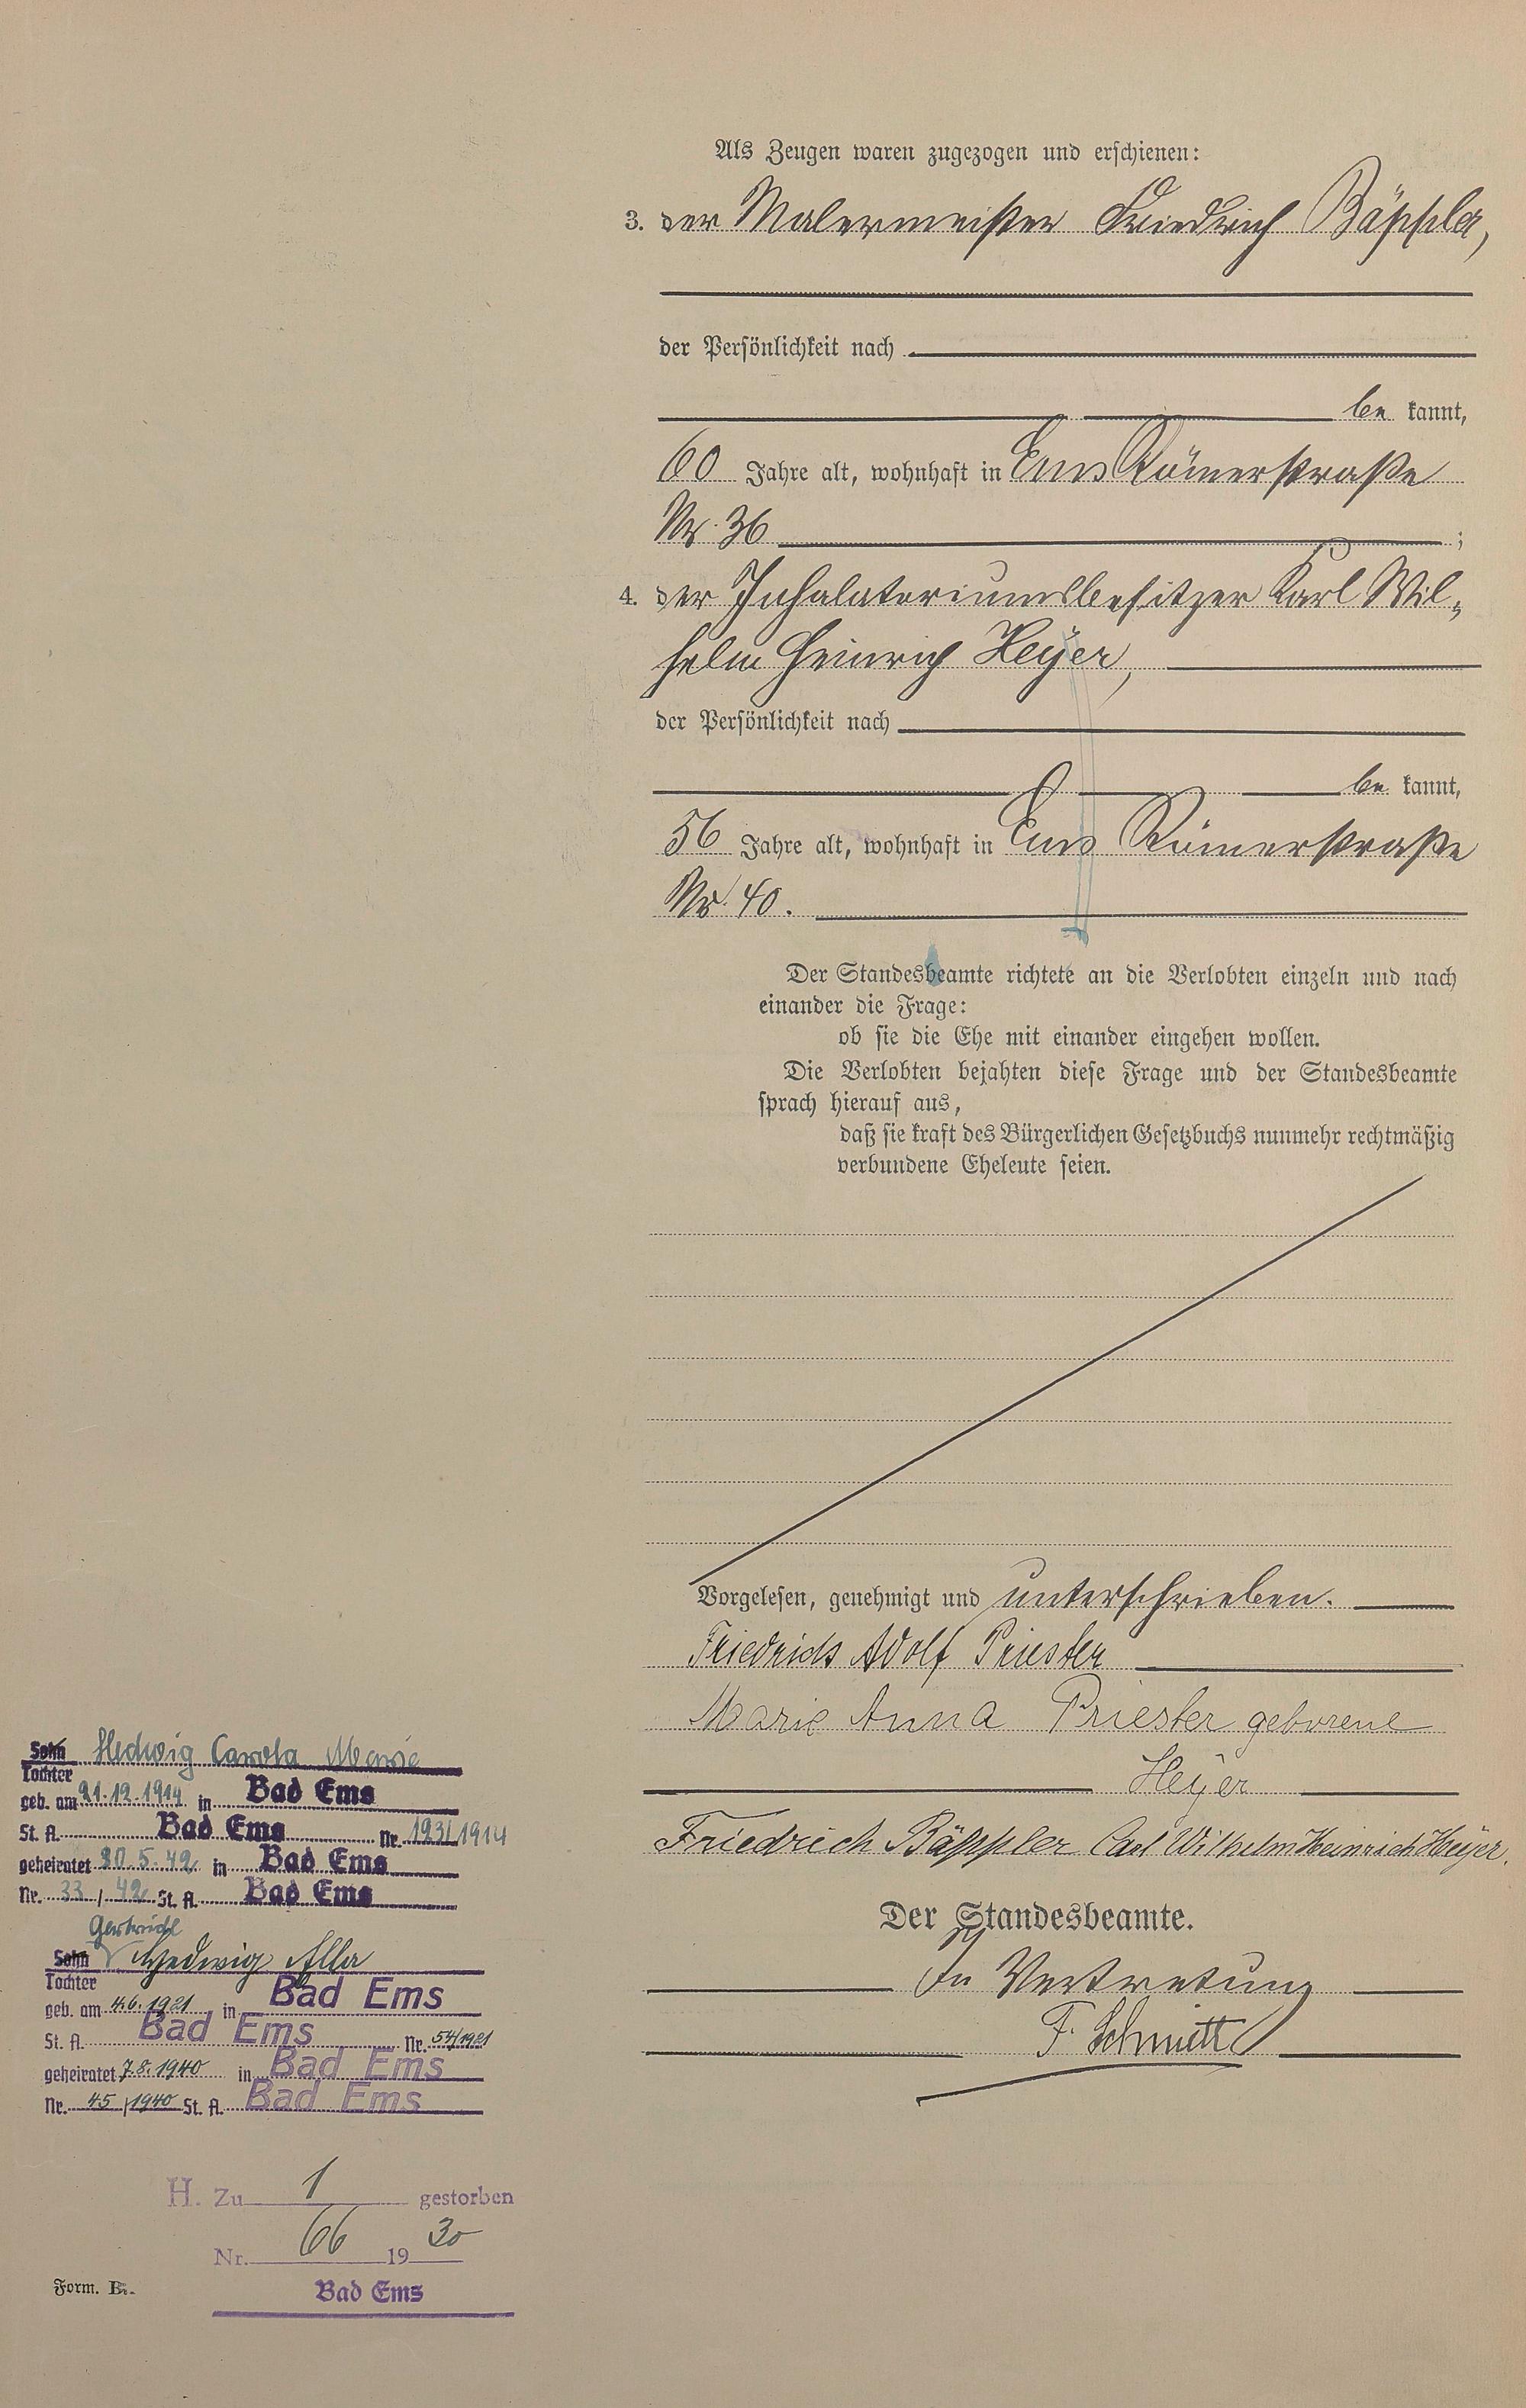 Als Zeugen waren zugezogen und erschienen:
3. der Malermeister Friedrich Bäppler,
der Persönlichkeit nach
be kannt,
60 Jahre alt, wohnhaft in Ems Römerstraße
Nr. 36 ;
4. der Inhalatoriumsbesitzer Karl Wil-
helm Heinrich Heyer,
der Persönlichkeit nach
be kannt,
56 Jahre alt, wohnhaft in Ems Römerstraße
Nr. 40.
Der Standesbeamte richtete an die Verlobten einzeln und nach
einander die Frage:
ob sie die Ehe mit einander eingehen wollen.
Die Verlobten bejahten diese Frage und der Standesbeamte
sprach hierauf aus,
daß sie kraft des Bürgerlichen Gesetzbuchs nunmehr rechtmäßig
verbundene Eheleute seien.
Vorgelesen, genehmigt und unterschrieben.
Friedrich Adolf Priester
Marie Anna Priester geborene
Heyer
Friedrich Bäppler Carl Wilhelm Heinrich Heyer.
Der Standesbeamte.
In Vertretung
F. Schmitt
Sohn Hedwig Carola Marie
Tochter
geb. am 21.12.1914 in Bad Ems
St. A. Bad Ems Nr. 193/1914
geheiratet 20.5.42 in Bad Ems
Nr. 33 / 42 St. A. Bad Ems
Sohn Hedwig Ella
Tochter
geb. am 4.6.1921 in Bad Ems
St. A. Bad Ems Nr. 54/1921
geheiratet 7.8.1940 in Bad Ems
Nr. 45 / 1940 St. A. Bad Ems
H. Zu 1 gestorben
Nr. 66 19 30
Form. B.
Bad Ems